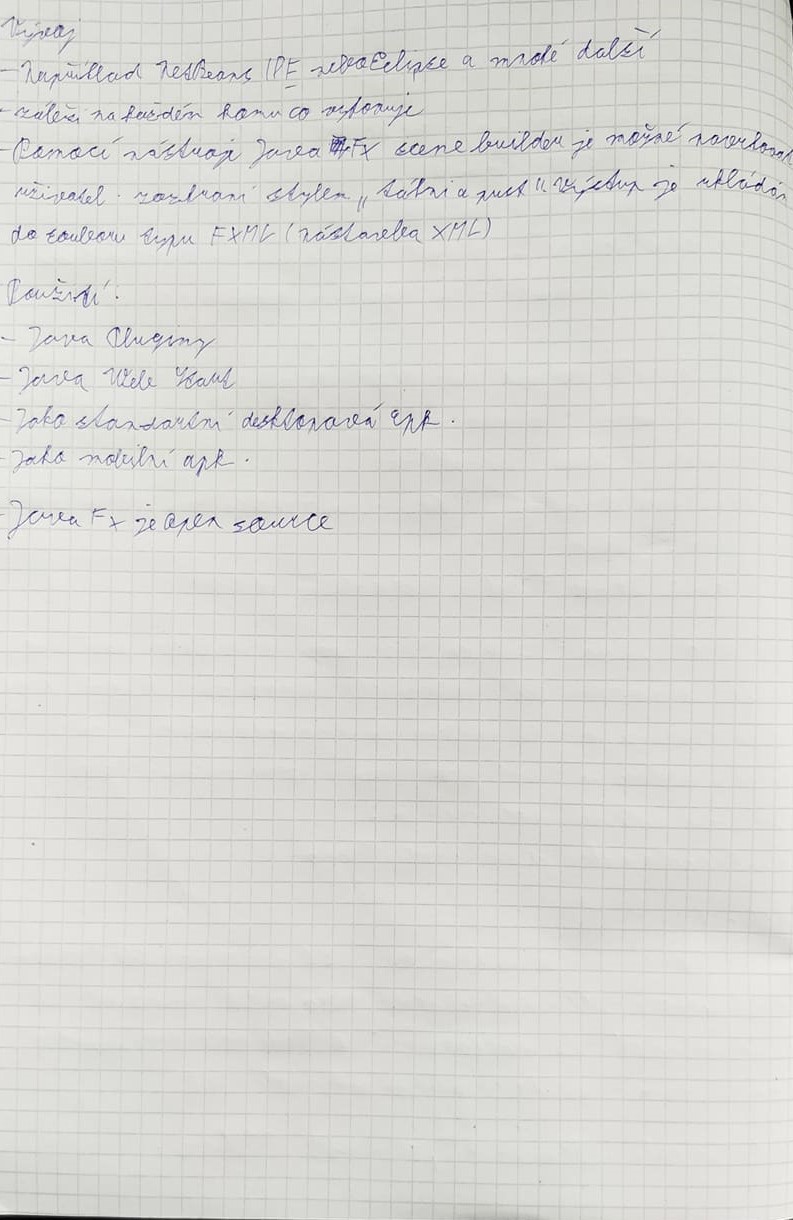 Vývoj
- Například NetBeans IDE nebo Eclipse a mnohé další
- záleží na každém komu co vyhovuje
- Pomocí nástroje Java FX scene builder je možné navrhovat
uživatel. rozhraní stylem „táhni a pusť“ výstup je ukládán
do souboru typu FXML (nástavba XML)
Použití:
- Java Pluginy
- Java Web Start
- Jako standartní desktopová apk.
- Jako mobilní apk.
- Java Fx je open source